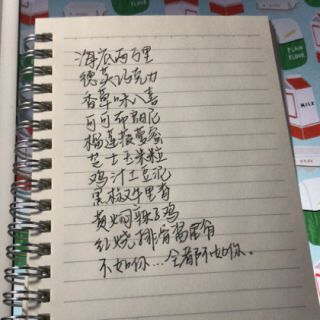 海底两万里
德芙巧克力
香草味八喜
可可布朗尼
榴莲菠萝蜜
芝士玉米粒
鸡汁土豆泥
黑椒牛里脊
黄焖辣子鸡
红烧排骨
不如你…全都不如你。
PLAIN FLOUR
MILK